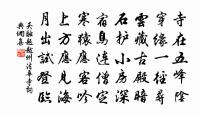 寺在五峰陰
穿緣一徑尋
雲藏古殿暗
石護小房深
宿鳥連僧定
寒猿應客吟
上方應見海
月出試登臨
吳融 越州法華寺